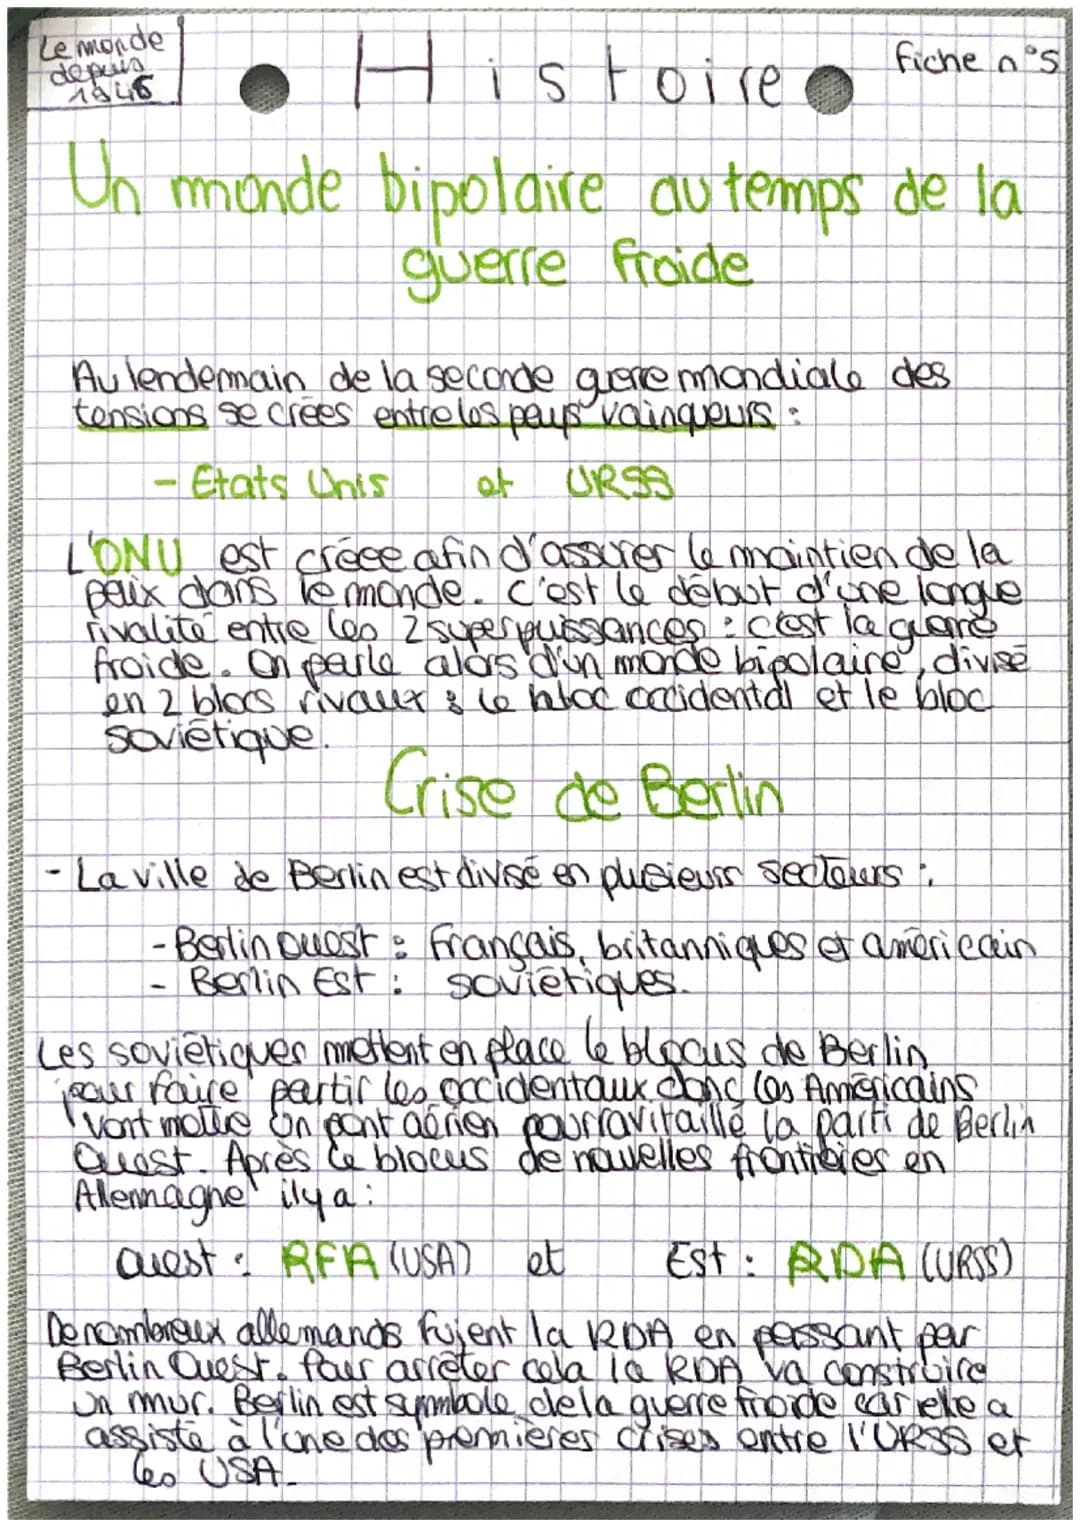 Le monde
depuis
1945
Histoire
fiche n°5
Un monde bipolaire au temps de la
guerre froide
Au lendemain de la seconde guerre mondiale des
tensions se crées entre les pays vainqueurs :
- Etats Unis et URSS
L'ONU est créée afin d'assurer le maintien de la
paix dans le monde. C'est le début d'une longue
rivalité entre les 2 superpuissances : c'est la guerre
froide. On parle alors d'un monde bipolaire, divisé
en 2 blocs rivaux : le bloc occidental et le bloc
soviétique.
Crise de Berlin
- La ville de Berlin est divisé en plusieurs secteurs :
- Berlin Ouest : français, britanniques et américain
- Berlin Est : soviétiques.
Les soviétiques mettent en place le blocus de Berlin
pour faire partir les occidentaux donc les Américains
vont mettre un pont aérien pour ravitaillé la parti de Berlin
Ouest. Après le blocus de nouvelles frontières en
Allemagne il y a :
Ouest : RFA (USA) et Est : RDA (URSS)
De nombreux allemands fuient la RDA en passant par
Berlin Ouest. Pour arrêter cela la RDA va construire
un mur. Berlin est symbole de la guerre froide car elle a
assisté à l'une des premières crises entre l'URSS et
les USA.